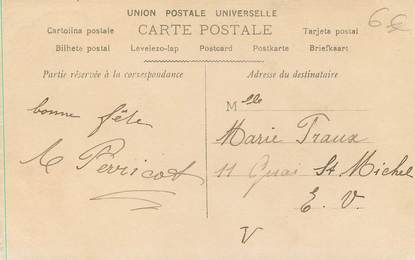 UNION POSTALE UNIVERSELLE
CARTE POSTALE
Cartolina postale
Tarjeta postal
Bilhete postal Levelezo-lap Postcard Postkarte Briefkaart
Partie réservée à la correspondance
Adresse du destinataire
bonne fête
Perricot
Mlle
Marie Traux
11 Quai St Michel
E. V.
V
6€